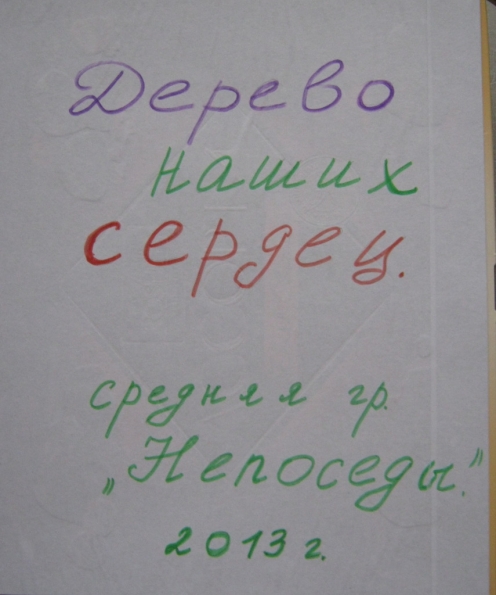 Дерево
наших
сердец.
средняя гр.
„Непоседы."
2013 г.